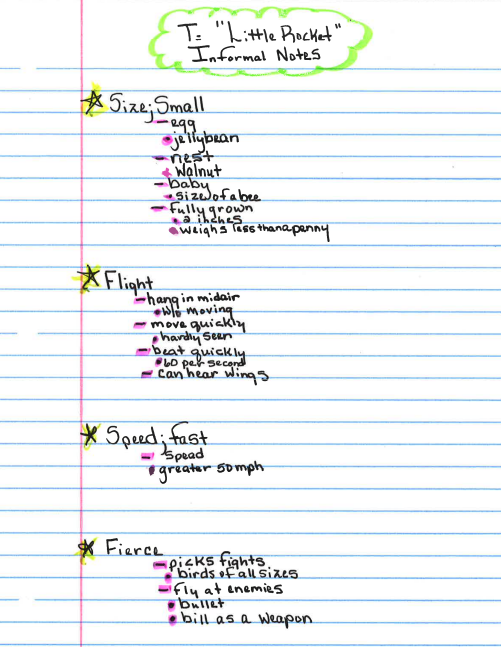 T: "Little Rocket"
Informal Notes
☆ Size; Small
- egg
• jellybean
- nest
• Walnut
- baby
• size of a bee
- fully grown
• 2 inches
• weighs less than a penny
☆ Flight
- hang in midair
• w/o moving
- move quickly
• hardly seen
- beat quickly
• 60 per second
- can hear wings
☆ Speed; fast
- Spead
• greater 50mph
☆ Fierce
- picks fights
• birds of all sizes
- fly at enemies
• bullet
• bill as a weapon